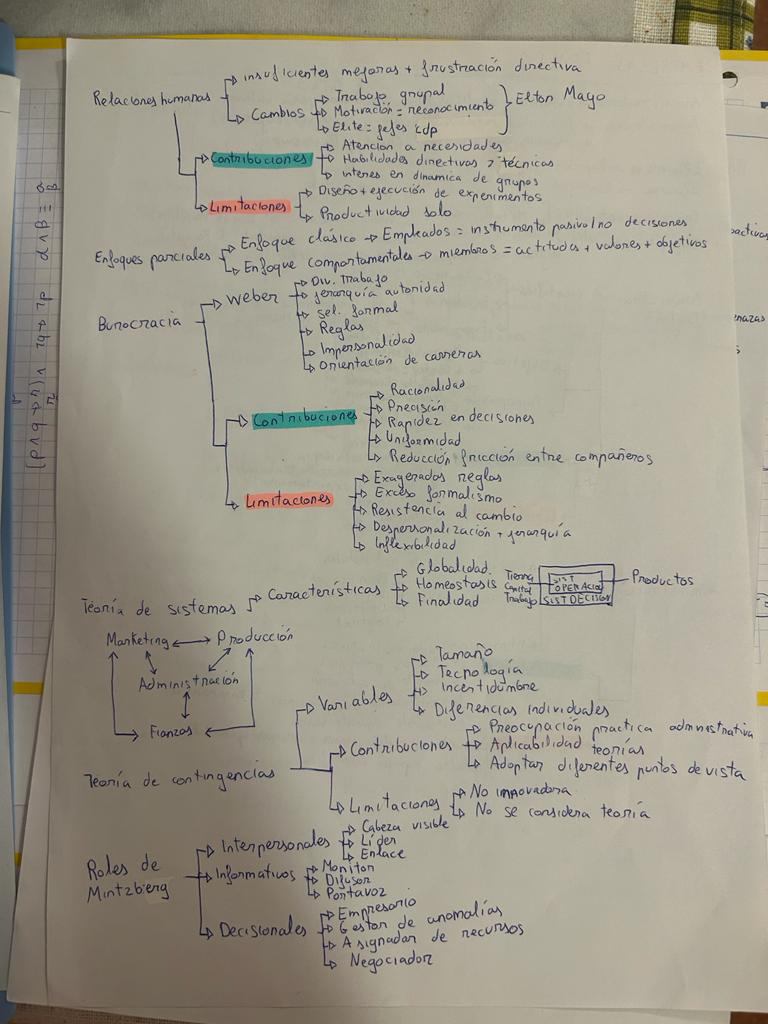 insuficientes mejoras + frustración directiva
Relaciones humanas
Cambios
Trabajo grupal
Motivación = reconocimiento
Elite = jefes cdp
Elton Mayo
Contribuciones
Atención a necesidades
Habilidades directivas > técnicas
interes en dinamica de grupos
Limitaciones
Diseño + ejecución de experimentos
Productividad solo
Enfoques parciales
Enfoque clásico → Empleados = instrumento pasivo/no decisiones
Enfoque comportamentales → miembros = actitudes + valores + objetivos
Burocracia
Weber
Div. Trabajo
jerarquía autoridad
sel. formal
Reglas
Impersonalidad
Orientación de carreras
Contribuciones
Racionalidad
Precisión
Rapidez en decisiones
Uniformidad
Reducción fricción entre compañeros
Limitaciones
Exagerados reglas
Exceso formalismo
Resistencia al cambio
Despersonalización + jerarquía
Inflexibilidad
Teoría de sistemas
Características
Globalidad
Homeostasis
Finalidad
Tierra
Capital
Trabajo
SIST
OPERACIO
SIST DECISION
Productos
Marketing ↔ Producción
Administración
Fianzas
Teoría de contigencias
Variables
Tamaño
Tecnología
Incertidumbre
Diferencias individuales
Contribuciones
Preocupación practica administrativa
Aplicabilidad teorías
Adoptar diferentes puntos de vista
Limitaciones
No innovadora
No se considera teoría
Roles de
Mintzberg
Interpersonales
Cabeza visible
Líder
Enlace
Informativos
Monitor
Difusor
Portavoz
Decisionales
Empresario
Gestor de anomalías
Asignador de recursos
Negociador